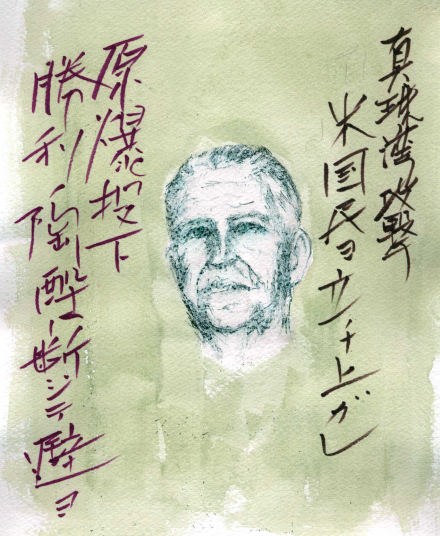 真珠湾攻撃
米国民ヨ立チ上ガレ
原爆投下
勝利陶酔ハ断ジテ避ヨ